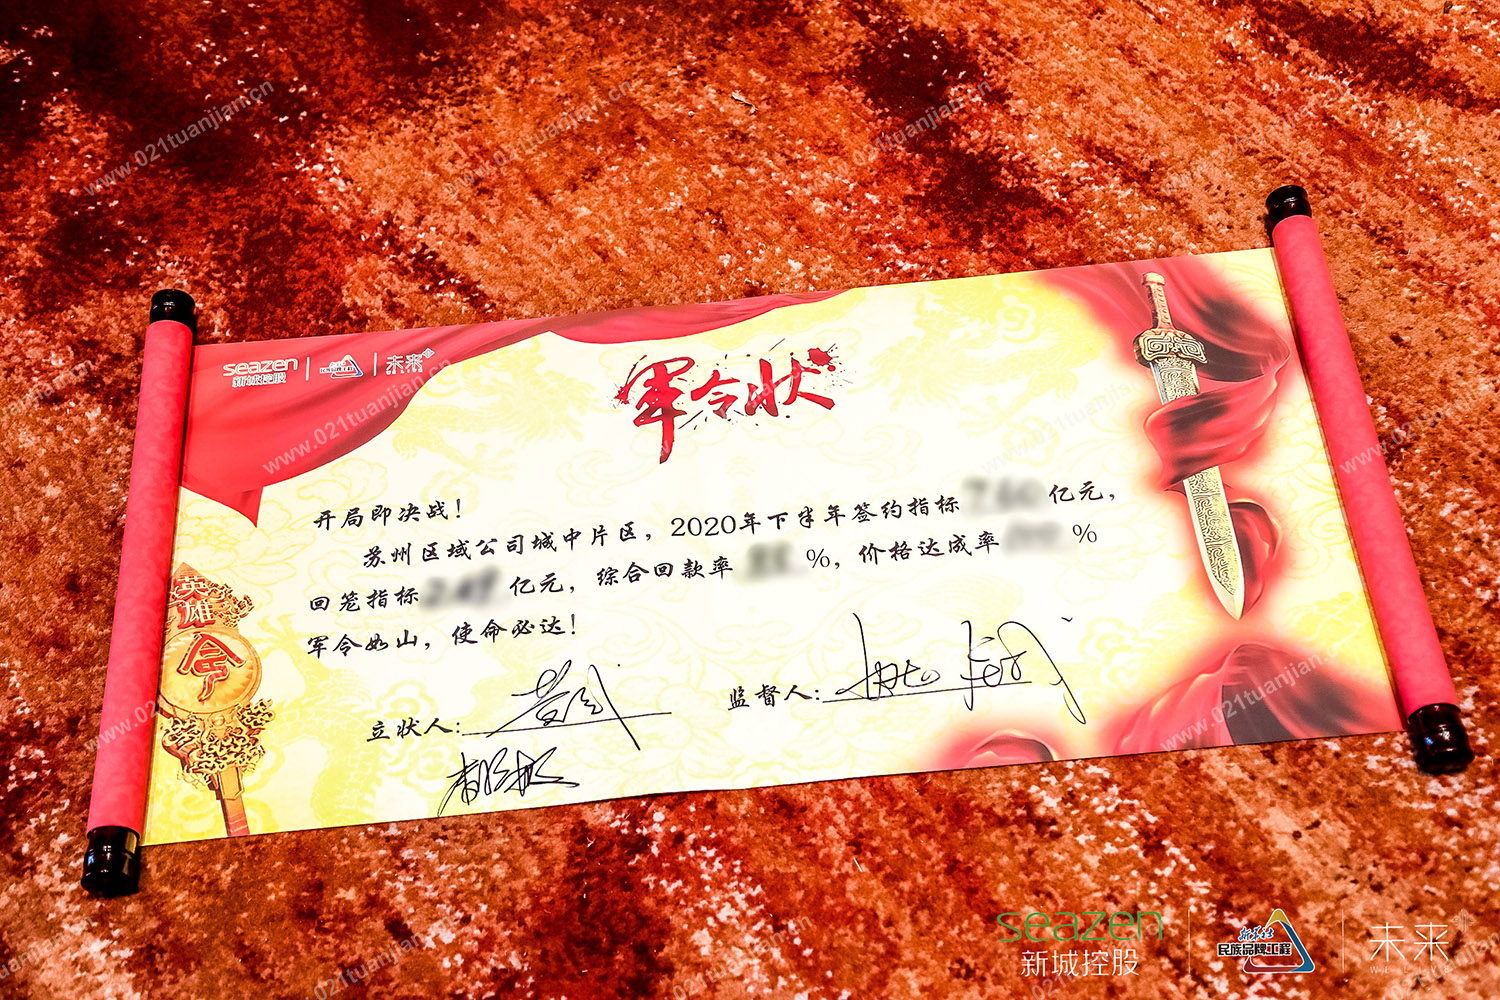 seazen
新城控股
民族品牌工程
未来
军令状
开局即决战！
苏州区域公司城中片区，2020年下半年签约指标 亿元，
回笼指标 亿元，综合回款率 %，价格达成率 %
军令如山，使命必达！
英雄
令
立状人：
监督人：
seazen
新城控股
新华社
民族品牌工程
未来
www.021tuanjian.cn